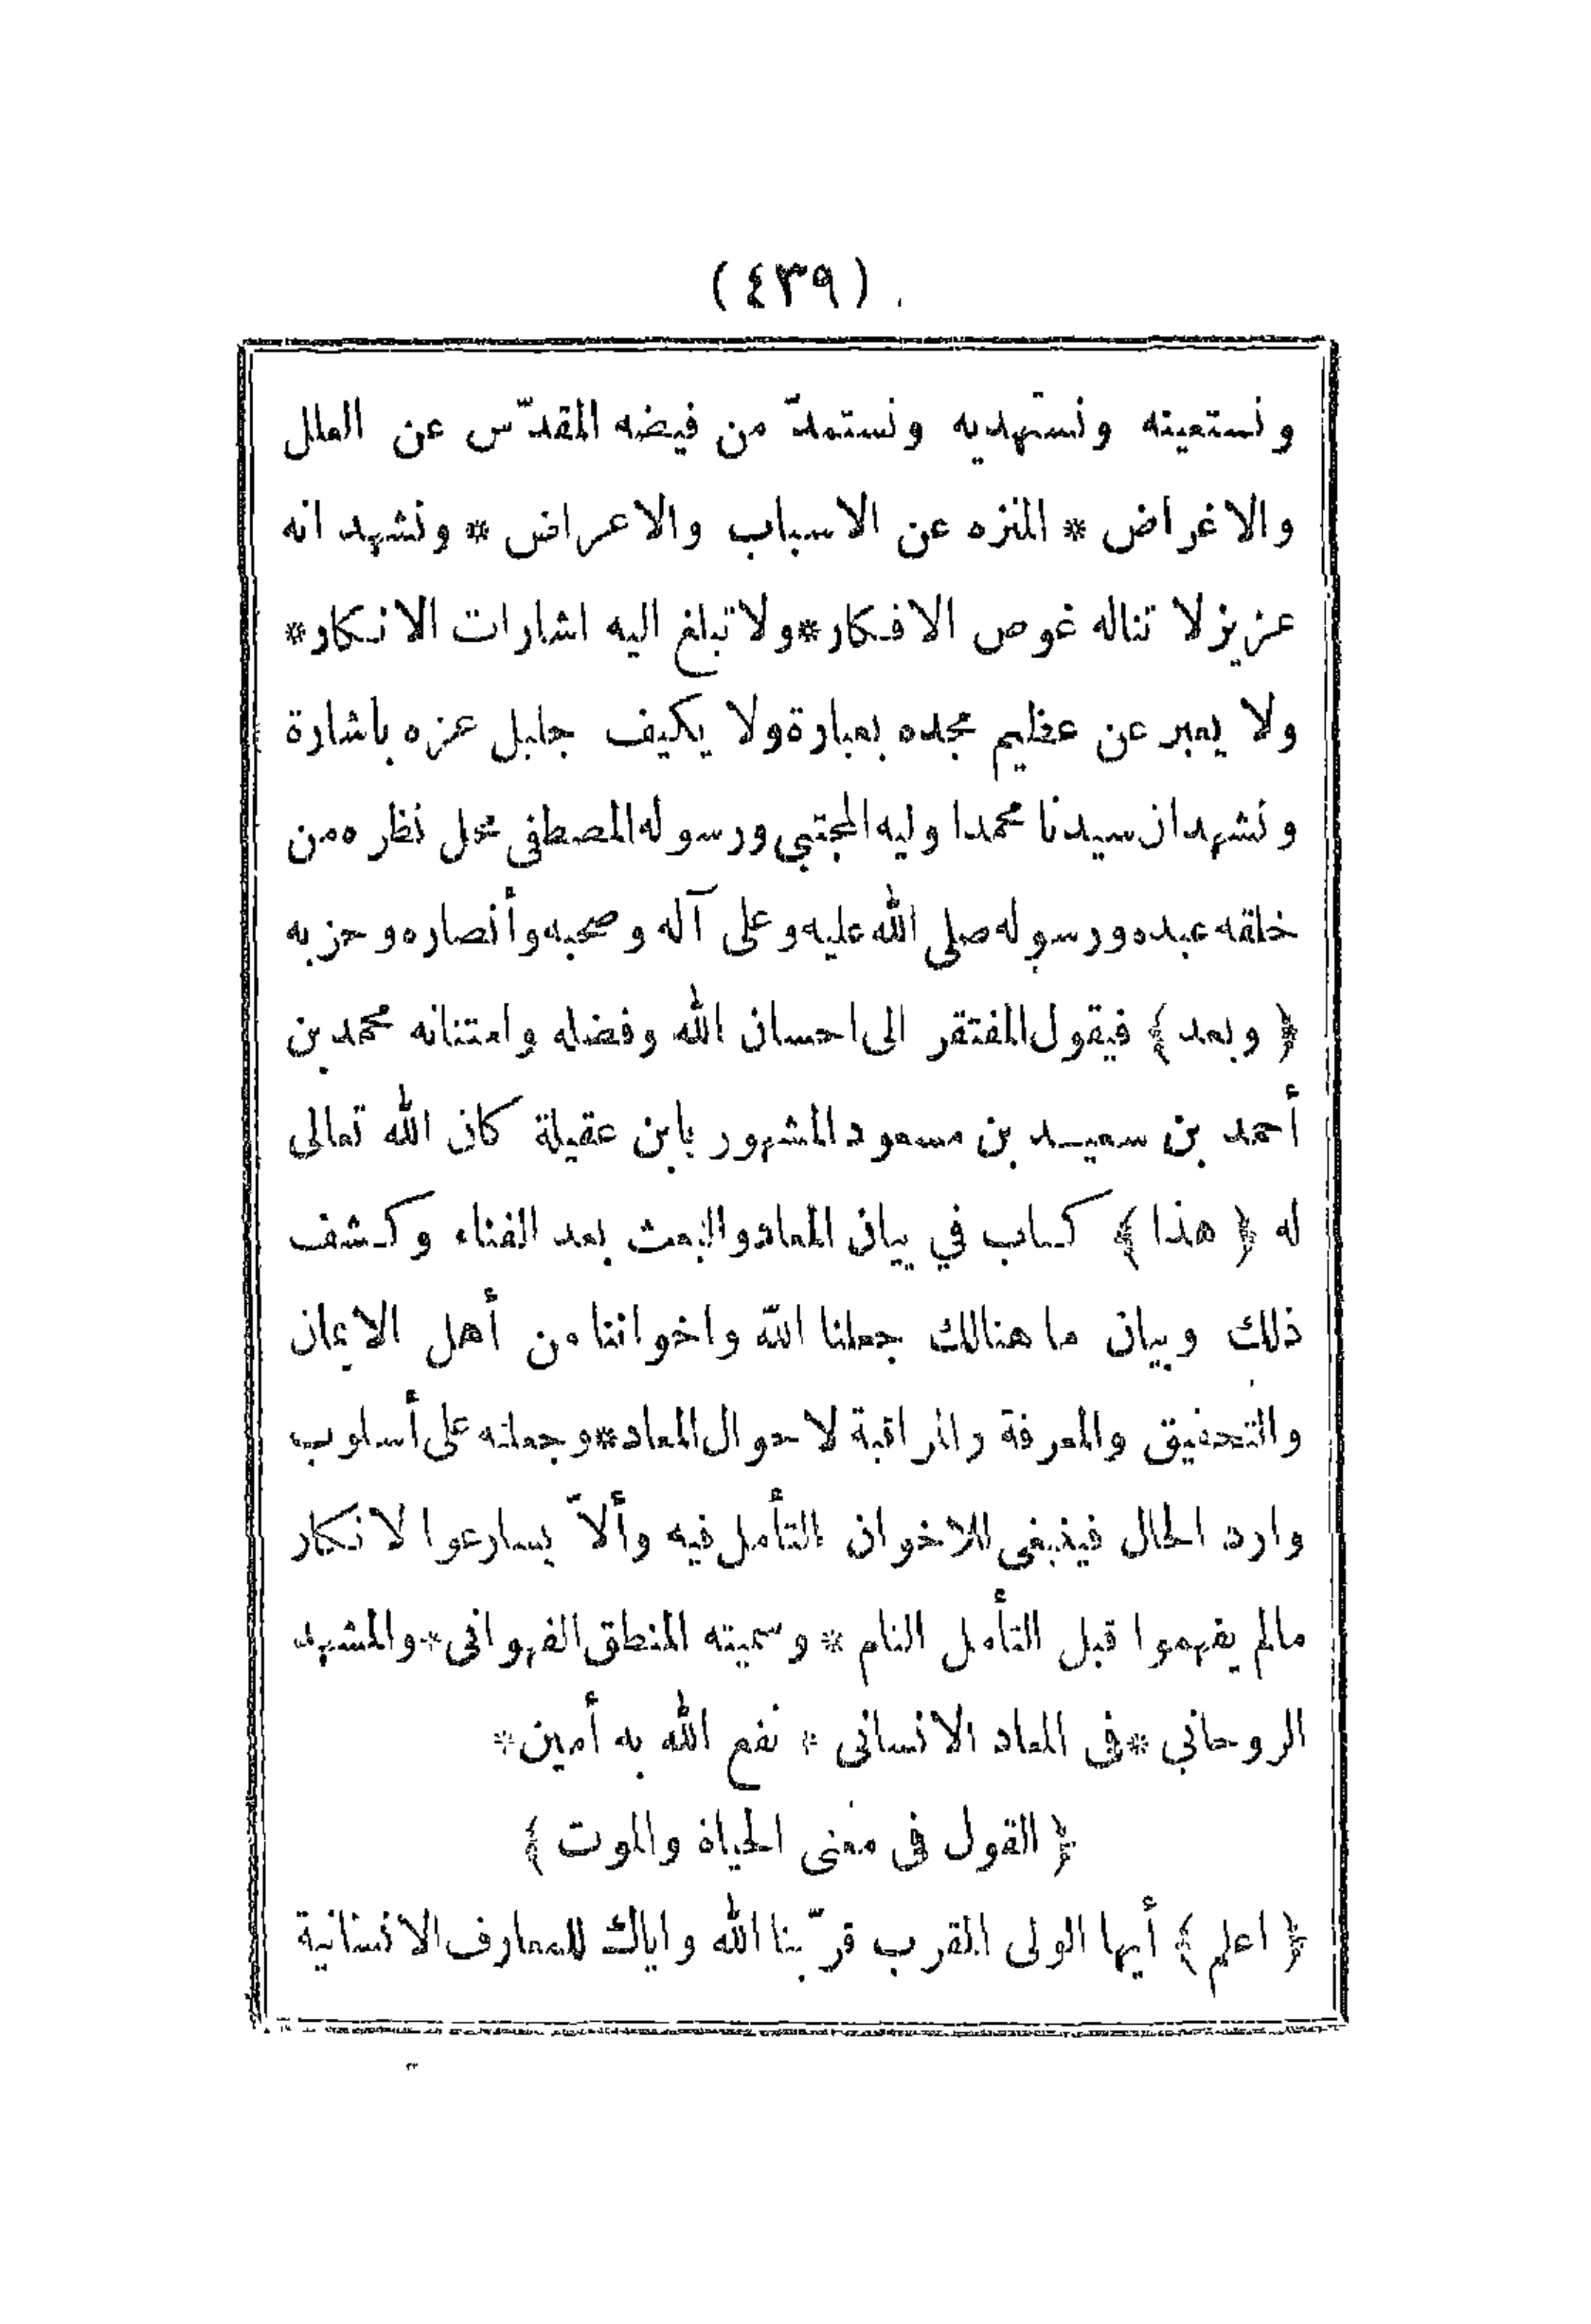 (٤٣٩)
ونستعينه ونستهديه ونستمدّ من فيضه المقدّس عن العلل
والاغراض * المنزه عن الاسباب والاعراض * ونشهد انه
عزيز لا تناله غوص الافكار * ولا تبلغ اليه اشارات الانكار *
ولا يعبر عن عظيم مجده بعبارة ولا يكيف جليل عزه باشارة
ونشهد ان سيدنا محمدا وليه المجتبي ورسوله المصطفى محل نظره من
خلقه عبده ورسوله صلى الله عليه وعلى آله وصحبه وأنصاره وحزبه
﴿ وبعد ﴾ فيقول المفتقر الى احسان الله وفضله وامتنانه محمد بن
أحمد بن سعيد بن مسعود المشهور بابن عقيلة كان الله تعالى
له ﴿ هذا ﴾ كتاب في بيان المعاد والبعث بعد الفناء وكشف
ذلك وبيان ما هنالك جعلنا الله واخواننا من أهل الايمان
والتحقيق والمعرفة والمراقبة لاحوال المعاد * وجعلته على أسلوب
وارد الحال فينبغى للاخوان التأمل فيه وألاّ يسارعوا لانكار
مالم يفهموا قبل التأمل التام * وسميته المنطق الفهوانى * والمشهد
الروحاني * فى المعاد الانسانى * نفع الله به أمين *
﴿ القول فى معنى الحياة والموت ﴾
﴿ اعلم ﴾ أيها الولى المقرب قرّبنا الله واياك للمعارف الانسانية